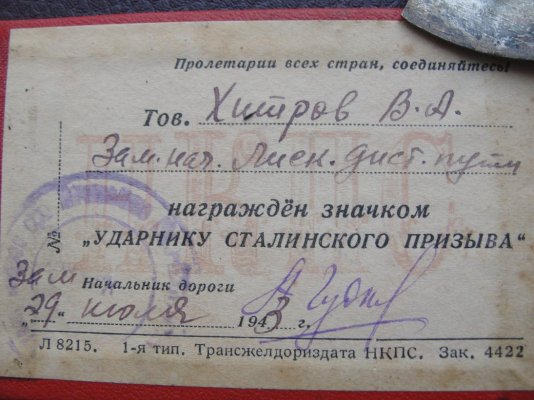 Пролетарии всех стран, соединяйтесь!
Тов. Хитров В.А.
Зам. нач. Лиск. дист. пути
награждён значком
„УДАРНИКУ СТАЛИНСКОГО ПРИЗЫВА“
№
Зам Начальник дороги
„29“ июля 1943 г.
Л 8215. 1-я тип. Трансжелдориздата НКПС. Зак. 4422